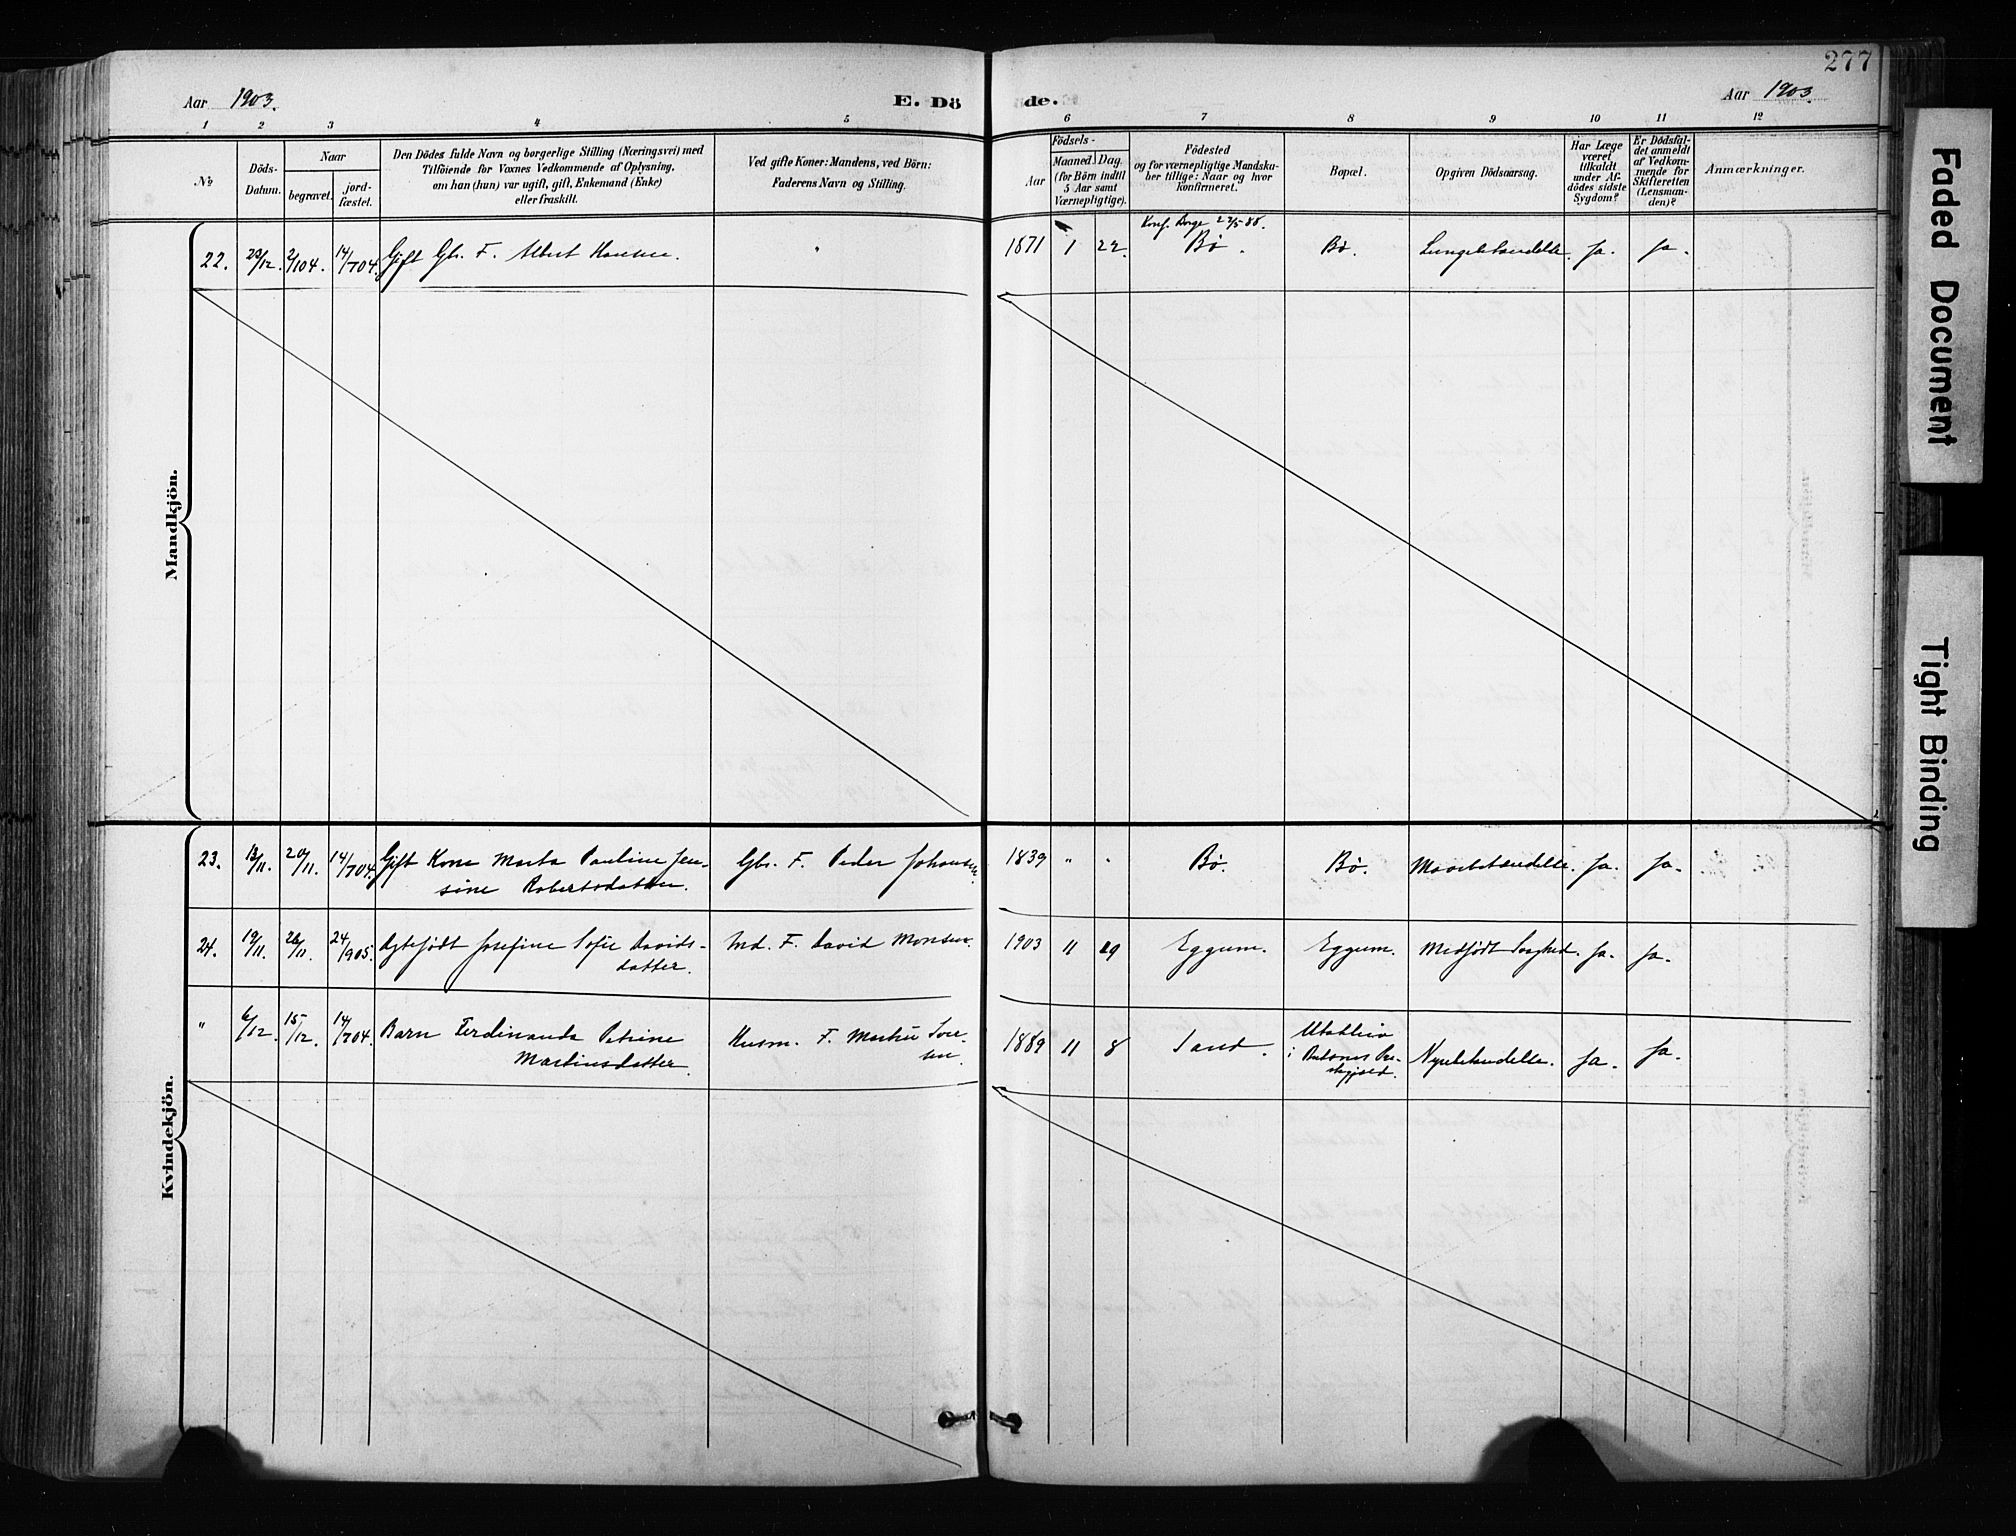 277
Aar 1903.
E. Dö de.
Aar 1903
1 2 3 4 5 6 7 8 9 10 11 12
No
Döds-Datum.
Naar
begravet.
jord-fæstet.
Den Dödes fulde Navn og borgerlige Stilling (Næringsvei) med
Tilföiende for Voxnes Vedkommende af Oplysning,
om han (hun) var ugift, gift, Enkemand (Enke)
eller fraskilt.
Ved gifte Koner: Mandens, ved Börn:
Faderens Navn og Stilling.
Födsels-
Aar
Maaned. Dag.
(for Börn indtil
5 Aar samt
Værnepligtige).
Födested
og for værnepligtige Mandska-
ber tillige: Naar og hvor
konfirmeret.
Bopæl.
Opgiven Dödsaarsag.
Har Læge
været
tilkaldt
under Af-
dödes sidste
Sygdom?
Er Dödsfal-
det anmeldt
af Vedkom-
mende for
Skifteretten
(Lensman-
den)?
Anmærkninger.
Mandkjön.
Konf. Borge 22/5 88.
22. 29/12. 2/104. 14/704. Gift Gbr. F. Albert Hansen. " 1871 1 22. Bö. Bö. Lungebetændelse. Ja. Ja.
Kvindekjön.
23. 13/11. 20/11. 14/704. Gift Kone Marta Pauline Jen-
sine Robertsdatter. Gbr. F. Peder Johansen. 1839 " " Bö. Bö. Mavebetændelse. Ja. Ja.
24. 19/11. 26/11. 24/905. Ægtefödt Josefine Sofie Davids-
datter. Ind. F. David Monsen. 1903 11 29 Eggum. Eggum. Medfödt Svaghed. Ja. Ja.
" 6/12. 15/12. 14/704. Barn Ferdinanda Petrine
Martinsdatter. Husm. F. Martin Iver-
sen. 1889 11 8 Sand.
i Buksnes Præ-
stegjeld. Nyrebetændelse. Ja. Ja.
Faded Document
Tight Binding